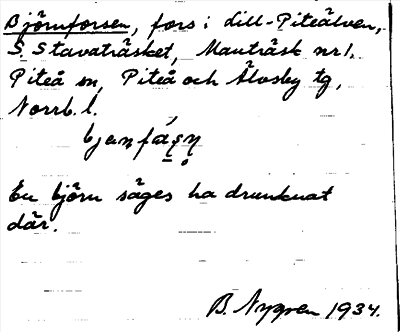 Björnforsen, fors i Lill-Piteälven,
S. Stavaträsket, Manträsk nr 1,
Piteå sn, Piteå och Älvsby tg,
Norrb. l.
En björn säges ha drunknat
där.
B. Nygren 1934.